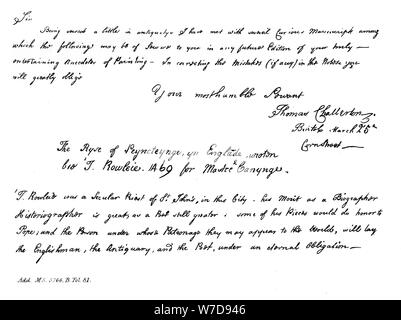 Sir
Being versed a little in antiquitys I have met with several Curious Manuscripts among
which the following may be of Service to you in any future Edition of your truly
entertaining Anecdotes of Painting — In correcting the Mistakes (if any) in the Notes you
will greatly oblige
Your most humble Servant
Thomas Chatterton
Bristol March 25th
Corn Street
The Ryse of Peyncteynge, yn Englande, wroten
bie T. Rowleie. 1469 for Mastre Canynge.
T. Rowleie was a Secular Priest of St. John's, in this City. his Merit as a Biographer
Historiographer is great, as a Poet still greater: some of his Pieces would do honor to
Pope; and the Person under whose Patronage they may appear to the World, will lay
the Englishman, the Antiquary, and the Poet, under an eternal Obligation —
Add. MS. 5766. B. Fol. 81.
alamy
alamy
Image ID: W7D946
www.alamy.com